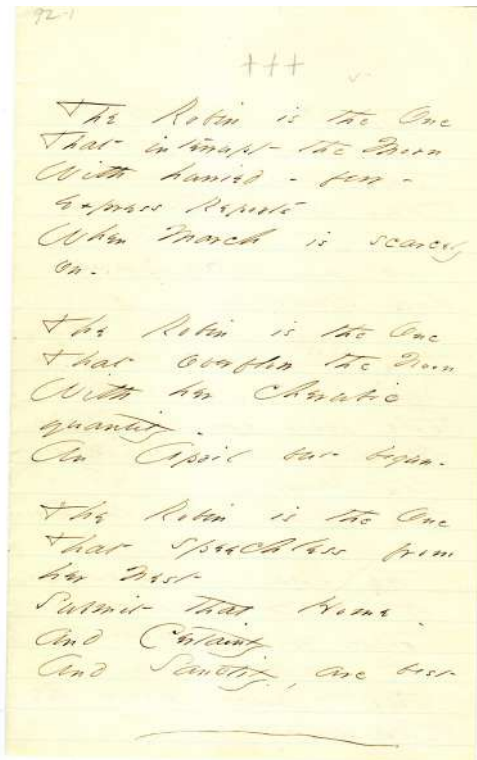 92-1
+++
The Robin is the One
That interrupt the Morn
With hurried - few -
Express Reports
When March is scarcely
on -
The Robin is the One
That overflow the Noon
With her Cherubic
quantity -
An April but begun -
The Robin is the One
That speechless from
her Nest
Submit that Home -
And Certainty
And Sanctity, are best